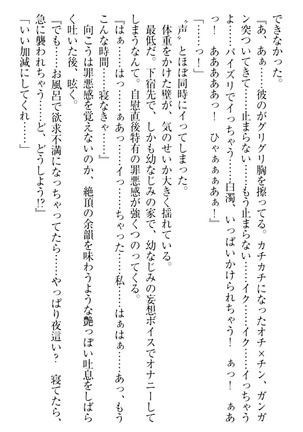 できなかった。
『あ、あぁ……彼のがグリグリ胸を擦ってる。カチカチになったオチ×チン、ガンガ
ン突ついてきて……止まらない……もう止まらない……イク……イク……イっちゃう
よ……パイズリでイっちゃう……白濁、いっぱいかけられちゃう！　ぁっ！　ああ
っ！　ああああっ！　ひゃぁぁぁぁあ！』
「……っ！」
〝声〟とほぼ同時にイってしまった。
体重をかけた壁が、気のせいか大きく揺れている。
最低だ。下宿先で、しかも幼なじみの家で、幼なじみの妄想ボイスでオナニーして
しまうなんて。自慰直後特有の罪悪感が強くのってくる。
『はぁ……はっ……ぁあっ……イっ……ちゃった……私……はぁはぁ……あっ、もう
こんな時間……寝なきゃ……』
向こうは罪悪感を覚えないのか、絶頂の余韻を味わうような艶っぽい吐息をしばら
く吐いた後、呟く。
『でも……お風呂で欲求不満になっちゃってたら……やっぱり夜這い？　寝てたら、
急に襲われちゃう……ど、どうしよう!?』
「いい加減にしてくれ……」